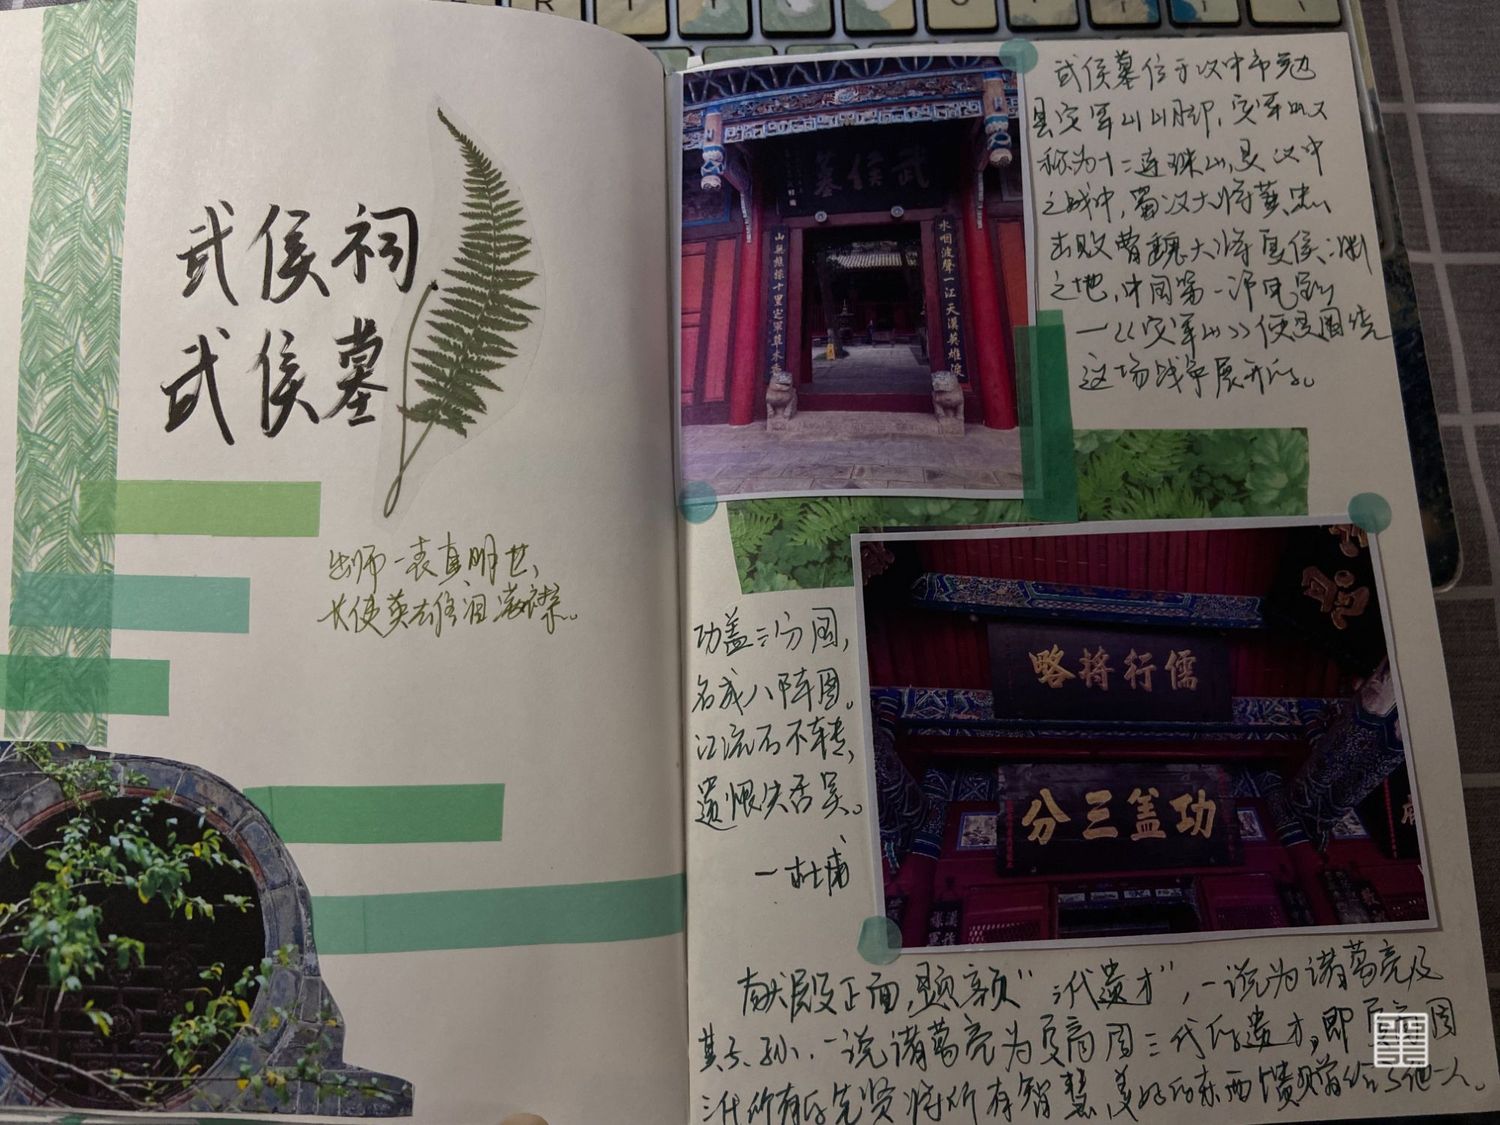 武侯祠
武侯墓
出师一表真明世、
长使英雄泪满襟。
武侯墓
山無態採十里定軍草木香
水咽波聲一江天漢英雄淚
武侯墓位于汉中市勉
县定军山山脚，定军山又
称为十二连珠山，是汉中
之战中，蜀汉大将黄忠
击败曹魏大将夏侯渊
之地，中国第一部电影
—《定军山》便是围绕
这场战争展开的。
略將行儒
分三蓋功
功盖三分国，
名成八阵图。
江流石不转，
遗恨失吞吴。
—杜甫
献殿正面，题额“三代遗才”，一说为诸葛亮及
其子、孙，一说诸葛亮为夏商周三代的遗才，即夏商周
三代所有的先贤将所有智慧、美好的东西馈赠给了他一人。